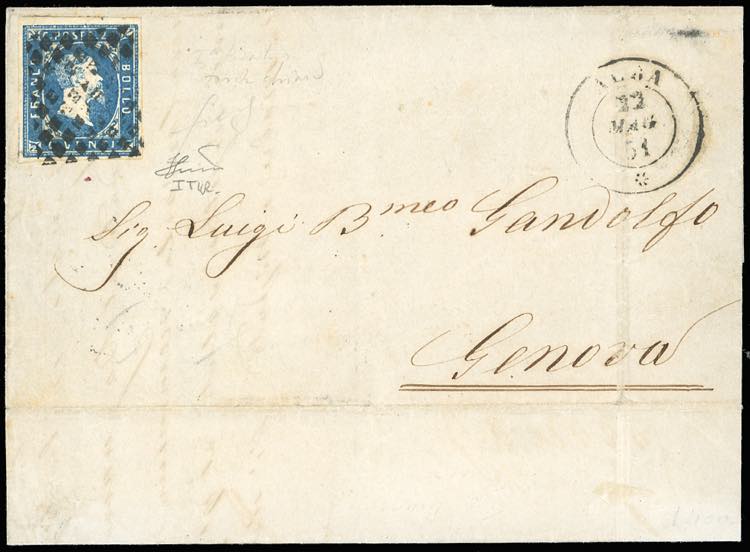 C. POSTE 20
FRANCO
BOLLO
ALBA
22
MAG
51
*
ITUR.
Sig. Luigi Bmeo Gandolfo
Genova